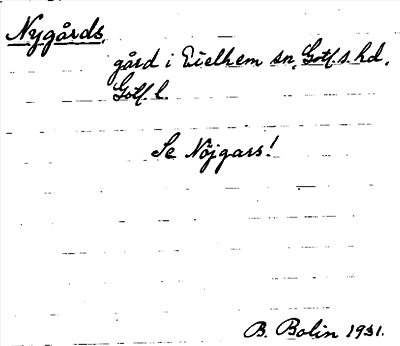 Nygårds,
gård i Etelhem sn, Gotl. s. hd,
Gotl. l.
Se Nöjgars!
B. Bolin 1931.